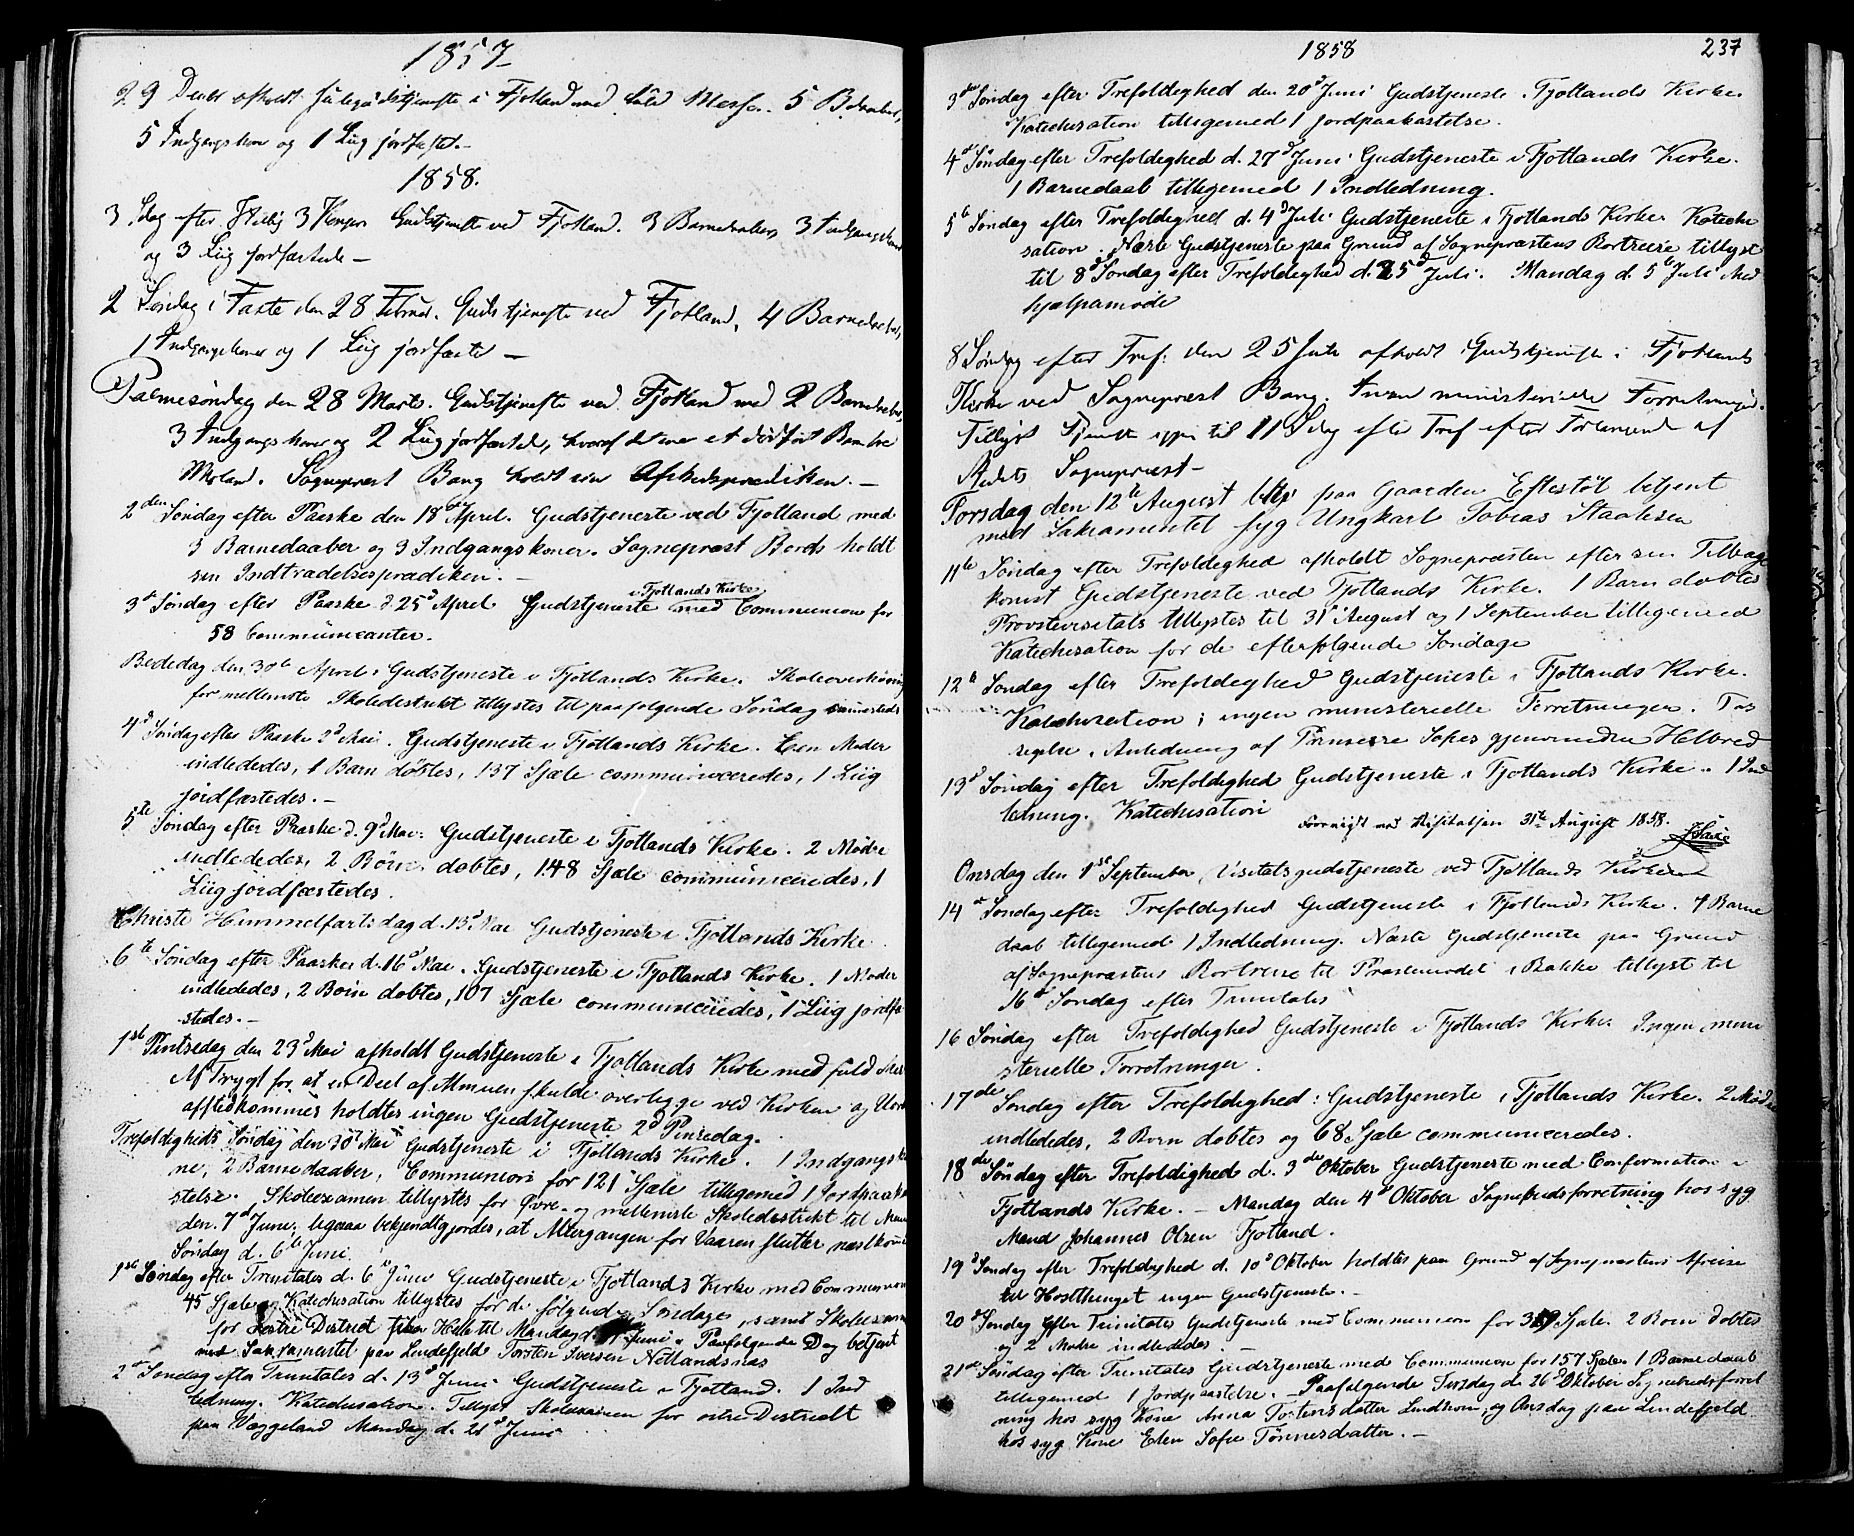 1857
29 Decbr afholdt Julegudstjeneste i Fjotland med fuld Messe. 5 Bdaaber,
5 Indgangskoner og 1 Liig jordfæstet.
1858.
3 Sdag efter Hellig 3 Konger Gudstjeneste ved Fjotland. 3 Barnedaaber, 3 Indgangskoner
og 3 Liig jordfæstede –
2 Søndag i Faste den 28 Februar. Gudstjeneste ved Fjotland, 4 Barnedaaber,
1 Indgangskone og 1 Liig jordfæstet –
Palmesøndag den 28 Marts. Gudstjeneste ved Fjotland med 2 Barnedaaber,
3 Indgangskoner og 2 Liig jordfæstede, hvoraf det ene et dødfødt Barn fra
Moland. Sognepræst Bang holdt sin Afskedsprædiken. –
2den Søndag efter Paaske den 18de April. Gudstjeneste ved Fjotland med
3 Barnedaaber og 3 Indgangskoner. Sognepræst Bords holdt
sin Indtrædelsesprædiken. –
3d Søndag efter Paaske d. 25d April Gudstjeneste i Fjotlands Kirke med Communion for
58 Communicanter.
Bededag den 30te April. Gudstjeneste i Fjotlands Kirke. Skoleoverhøring
for mellemste Skoledistrikt tillystes til paafølgende Søndag sammesteds
4d Søndag efter Paaske 2d Mai. Gudstjeneste i Fjotlands Kirke. Een Moder
indlededes, 1 Barn døbtes, 137 Sjæle communiceredes, 1 Liig
jordfæstedes. –
5te Søndag efter Paaske d. 9d Mai. Gudstjeneste i Fjotlands Kirke. 2 Mødre
indlededes, 2 Børn døbtes, 148 Sjæle communiceredes, 1
Liig jordfæstedes.
Christi Himmelfartsdag d. 13d Mai Gudstjeneste i Fjotlands Kirke
6te Søndag efter Paaske d. 16d Mai. Gudstjeneste i Fjotlands Kirke. 1 Moder
indlededes, 2 Børn døbtes, 107 Sjæle communiceredes, 1 Liig jordfæ
stedes. –
1ste Pintsedag den 23d Mai afholdt Gudstjeneste i Fjotlands Kirke med fuld Messe
Af Frygt for, at en Deel af Almuen skulde overligge ved Kirken og Uor
afstedkommes holdtes ingen Gudstjeneste 2d Pinsedag.
Trefoldigheds Søndag den 30d Mai Gudstjeneste i Fjotlands Kirke. 1 Indgangsko
ne, 2 Barnedaaber, Communion for 121 Sjæle tillegemed 1 Jordpaaka
stelse. Skoleexamen tillystes for øvre- og mellemste Skoledistrikt til Man
den 7d Juni, ligesaa bekjendtgjordes, at Altergangen for Vaaren slutter næstkom
Søndag d. 6te Juni
1ste Søndag efter Trinitates d. 6te Juni Gudstjeneste i Fjotlands Kirke med Communion
45 Sjæle. Katechisation tillystes for de følgende Søndage, samt Skoleexam
for District til Mandag Juni. Paafølgende Dag betjent
med Sakramentet paa Lindefjeld Torsten Iversen Netlandsnæs
2d Søndag efter Trinitates d. 13d Juni. Gudstjeneste i Fjotland. 1 Ind
ledning. Katechisation. Tillyst Skoleexamen for District
paa Veggeland Mandag d. 21d Juni
1858
237
3die Søndag efter Trefoldighed den 20d Juni Gudstjeneste i Fjotlands Kirke.
Katechisation tilligemed 1 Jordpaakastelse.
4d Søndag efter Trefoldighed d. 27d Juni Gudstjeneste i Fjotlands Kirke.
1 Barnedaab tilligemed 1 Indledning.
5te Søndag efter Trefoldighed d. 4d Juli Gudstjeneste i Fjotlands Kirke. Kateche
sation. Næste Gudstjeneste paa Grund af Sognepræstens Bortreise tillyst
til 8d Søndag efter Trefoldighed d. 25d Juli. Mandag d. 5te Juli Med
hjælpamøde
8 Søndag efter Tref. den 25 Juli afholdt Gudstjeneste i Fjotlands
Kirke ved Sognepræst Bang. Ingen ministerielle Forretninger.
Tillyst Tjeneste igjen til 11 Sdag efter Tref efter Forlangende af
Stedets Sognepræst –
Torsdag den 12te August blev paa Gaarden Eftestøl betjent
med Sakramentet syg Ungkarl Tobias Staalesen
11te Søndag efter Trefoldighed afholdt Sognepræsten efter sin Tilbage
komst Gudstjeneste ved Fjotlands Kirke. 1 Barn døbtes
Provstevisitats tillystes til 31 August og 1 September tilligemed
Katechisation for de efterfølgende Søndage
12te Søndag efter Trefoldighed Gudstjeneste i Fjotlands Kirke.
Katechisation; ingen ministerielle Forretninger. Tak
sigelse i Anledning af Prinsesse Sofies gjenvundne Helbred
13d Søndag efter Trefoldighed Gudstjeneste i Fjotlands Kirke. 1 Ind
ledning. Katechisation
Foreviist ved Visitatsen 31te August 1858.
Onsdag den 1ste September Visitatsgudstjeneste ved Fjotlands Kirke
14d Søndag efter Trefoldighed Gudstjeneste i Fjotlands Kirke. 1 Barne
daab tilligemed 1 Indledning. Næste Gudstjeneste paa Grund
af Sognepræstens Bortreise til Præstemødet i Bakke tillyst til
16d Søndag efter Trinitatis
16 Søndag efter Trefoldighed Gudstjeneste i Fjotlands Kirke Ingen mini
sterielle Forretninger.
17de Søndag efter Trefoldighed: Gudstjeneste i Fjotlands Kirke. 2 Mødre
indlededes, 2 Børn døbtes og 68 Sjæle communiceredes.
18de Søndag efter Trefoldighed d. 3die Oktober Gudstjeneste med Confirmation i
Fjotlands Kirke. – Mandag den 4d Oktober Sognebudsforretning hos syg
Mand Johannes Olsen Fjotland.
19d Søndag efter Trefoldighed d. 10d Oktober holdtes paa Grund af Sognepræstens Afreise
til Høstthinget ingen Gudstjeneste. –
20d Søndag efter Trinitates Gudstjeneste med Communion for Sjæle. 2 Børn døbtes
og 2 Mødre indlededes. –
21de Søndag efter Trinitates Gudstjeneste med Communion for 157 Sjæle. 1 Barnedaab
tilligemed 1 Jordpaakastelse. – Paafølgende Tirsdag d. 26d Oktober Sognebudsforret
ning hos syg Kone Anna Tostensdatter Lindland, og Onsdag paa Lindefjeld
hos syg Kone Elen Sofie Tønnesdatter. –